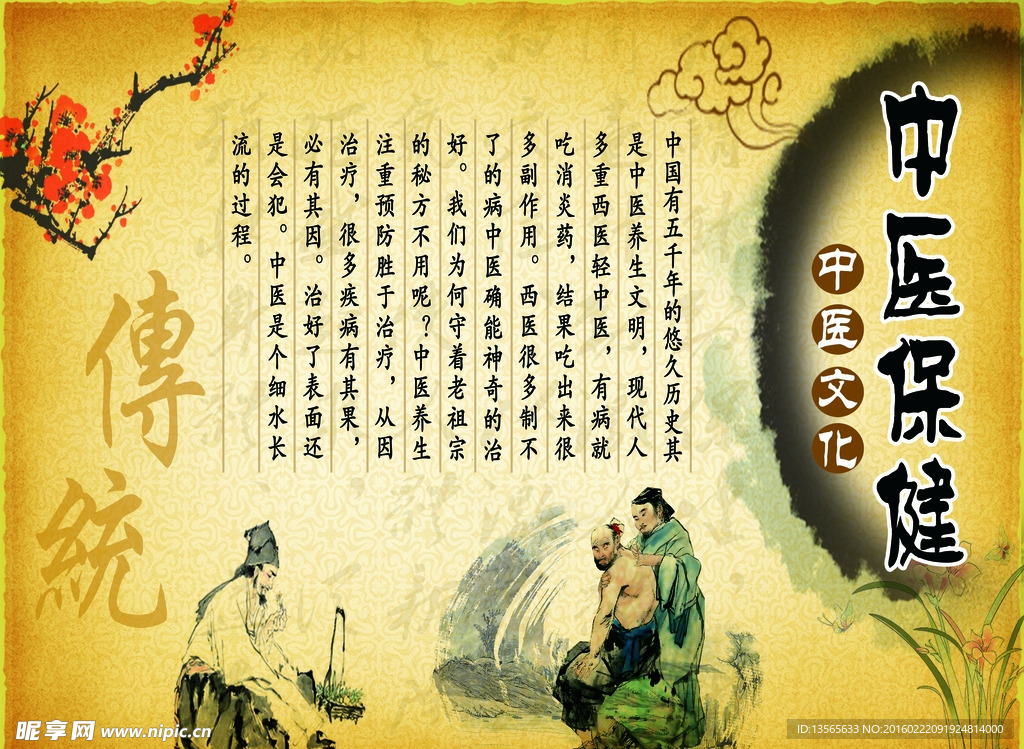 中医保健
中医文化
中国有五千年的悠久历史其
是中医养生文明，现代人
多重西医轻中医，有病就
吃消炎药，结果吃出来很
多副作用。西医很多制不
了的病中医确能神奇的治
好。我们为何守着老祖宗
的秘方不用呢？中医养生
注重预防胜于治疗，从因
治疗，很多疾病有其果，
必有其因。治好了表面还
是会犯。中医是个细水长
流的过程。
傳統
昵享网 www.nipic.cn
ID:13565633 NO:20160222091924814000